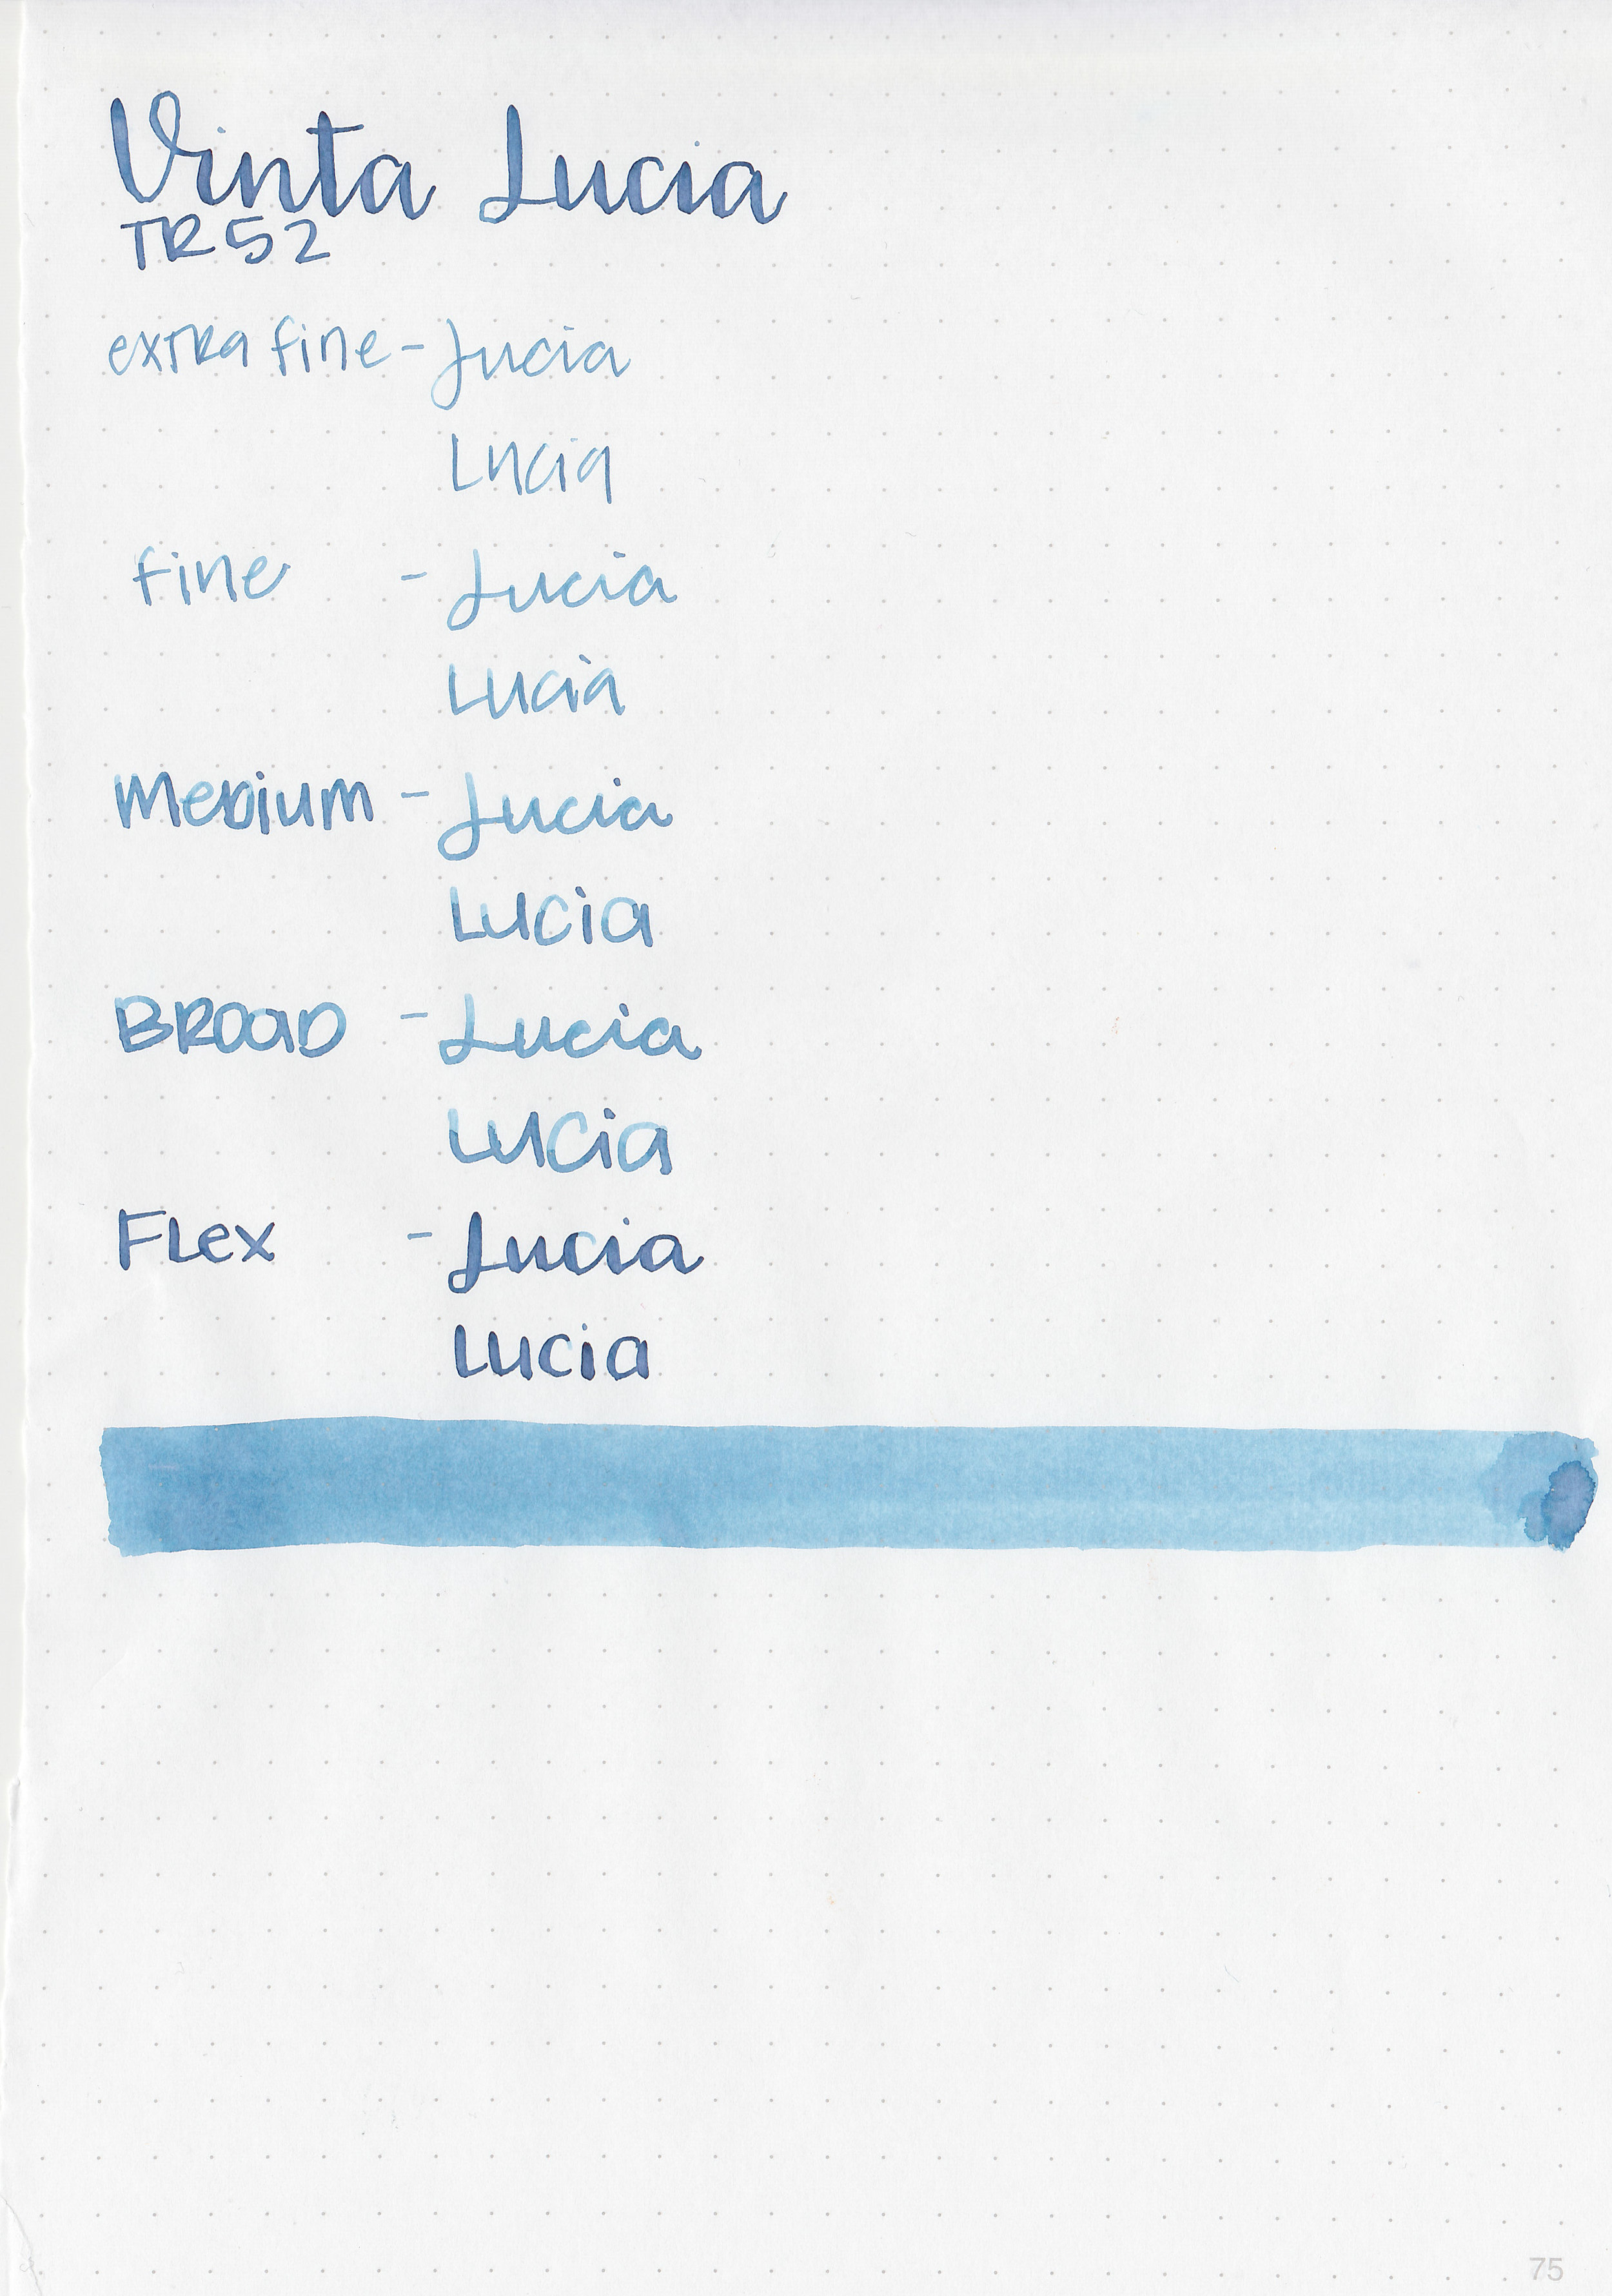 Vinta Lucia
TR52
extra fine - Lucia
Lucia
fine - Lucia
Lucia
Medium - Lucia
Lucia
BROAD - Lucia
Lucia
Flex - Lucia
Lucia
75